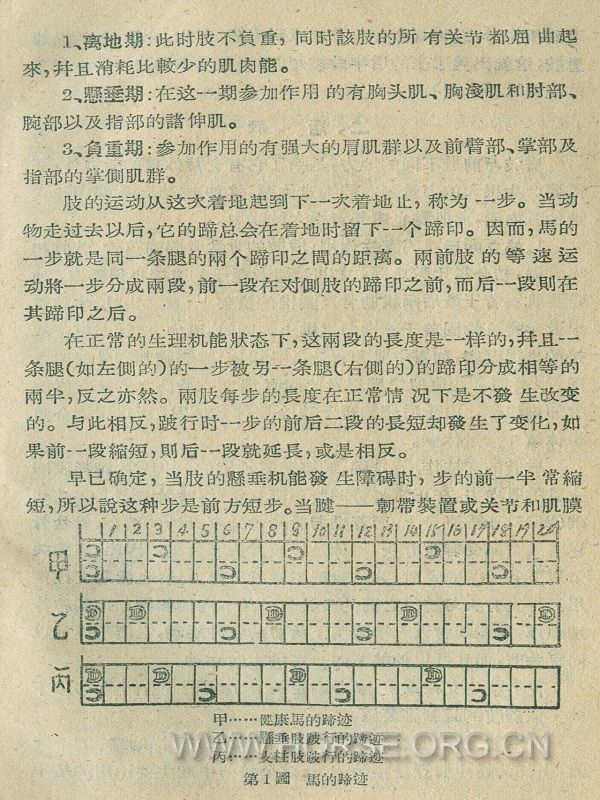 1、离地期:此时肢不負重,同時該肢的所有关节都屈曲起
來,幷且消耗比較少的肌肉能。
2、懸垂期:在这一期参加作用的有胸头肌、胸淺肌和肘部、
腕部以及指部的諸伸肌。
3、負重期:参加作用的有强大的肩肌群以及前臂部、掌部及
指部的掌側肌群。
肢的运动从这次着地起到下一次着地止,称为一步。当动
物走过去以后,它的蹄总会在着地时留下一个蹄印。因而,馬的
一步就是同一条腿的兩个蹄印之間的距离。兩前肢的等速运
动將一步分成兩段,前一段在对側肢的蹄印之前,而后一段則在
其蹄印之后。
在正常的生理机能狀态下,这兩段的長度是一样的,幷且一
条腿(如左側的)的一步被另一条腿(右側的)的蹄印分成相等的
兩半,反之亦然。兩肢每步的長度在正常情况下是不發生改变
的。与此相反,跛行时一步的前后二段的長短却發生了变化,如
果前一段縮短,則后一段就延長,或是相反。
早已确定,当肢的懸垂机能發生障碍时,步的前一半常縮
短,所以說这种步是前方短步。当腱——韌帶裝置或关节和肌膜
1 2 3 4 5 6 7 8 9 10 11 12 13 14 15 16 17 18 19 20
甲
乙
丙
甲……健康馬的蹄迹
乙……懸垂肢跛行的蹄迹
丙……支柱肢跛行的蹄迹
WWW.HORSE.ORG.CN
第1圖 馬的蹄迹